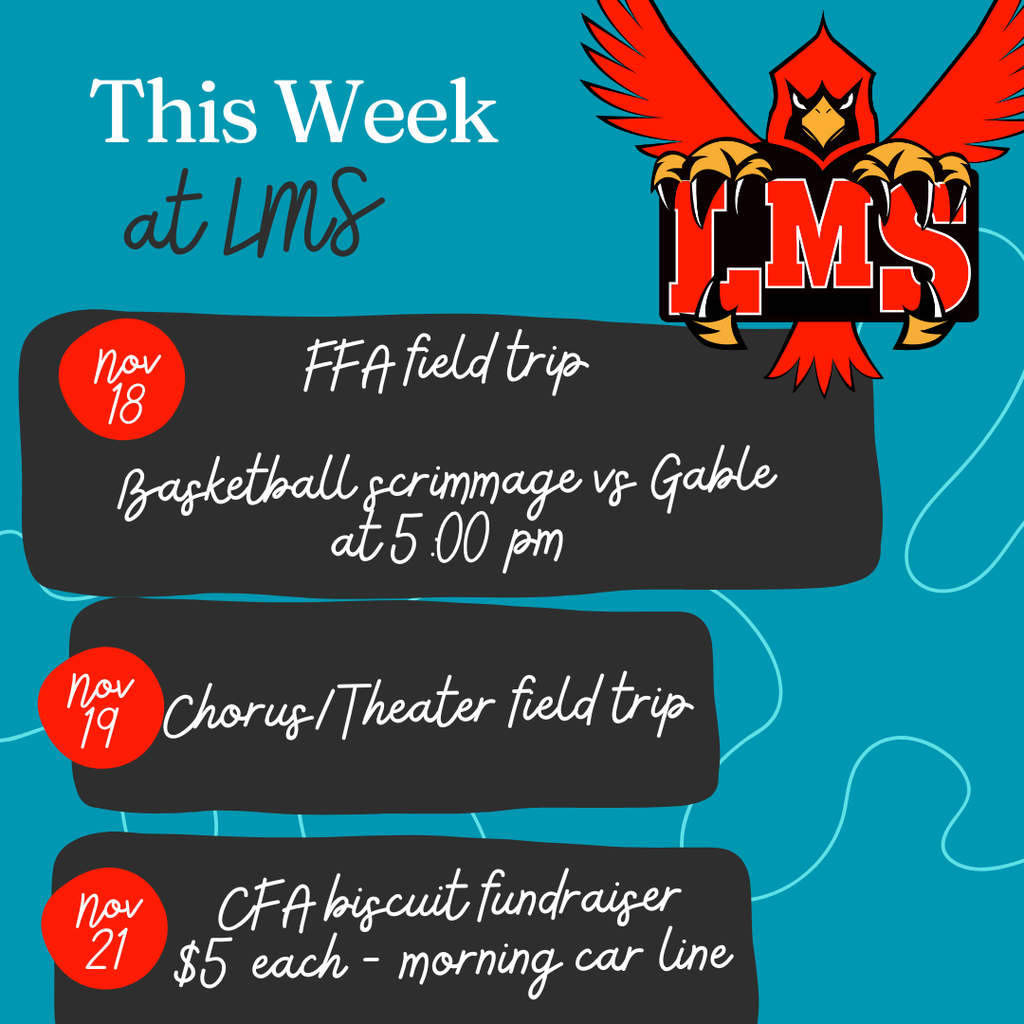 This Week
at LMS
LMS
Nov
18
FFA field trip
Basketball scrimmage vs Gable
at 5:00 pm
Nov
19
Chorus/Theater field trip
Nov
21
CFA biscuit fundraiser
$5 each - morning car line